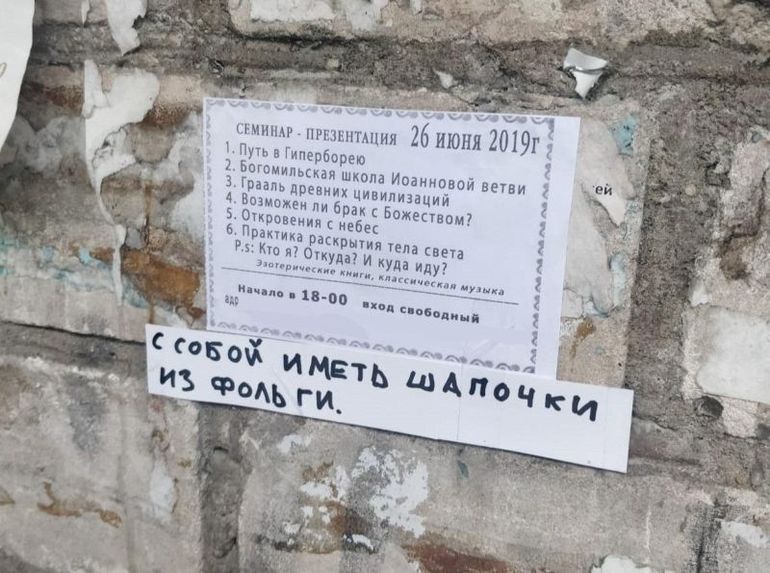 СЕМИНАР - ПРЕЗЕНТАЦИЯ 26 июня 2019г
1. Путь в Гиперборею
2. Богомильская школа Иоанновой ветви
3. Грааль древних цивилизаций
4. Возможен ли брак с Божеством?
5. Откровения с небес
6. Практика раскрытия тела света
P.s: Кто я? Откуда? И куда иду?
Эзотерические книги, классическая музыка
Начало в 18-00 вход свободный
адр
ей
С СОБОЙ ИМЕТЬ ШАПОЧКИ
ИЗ ФОЛЬГИ.